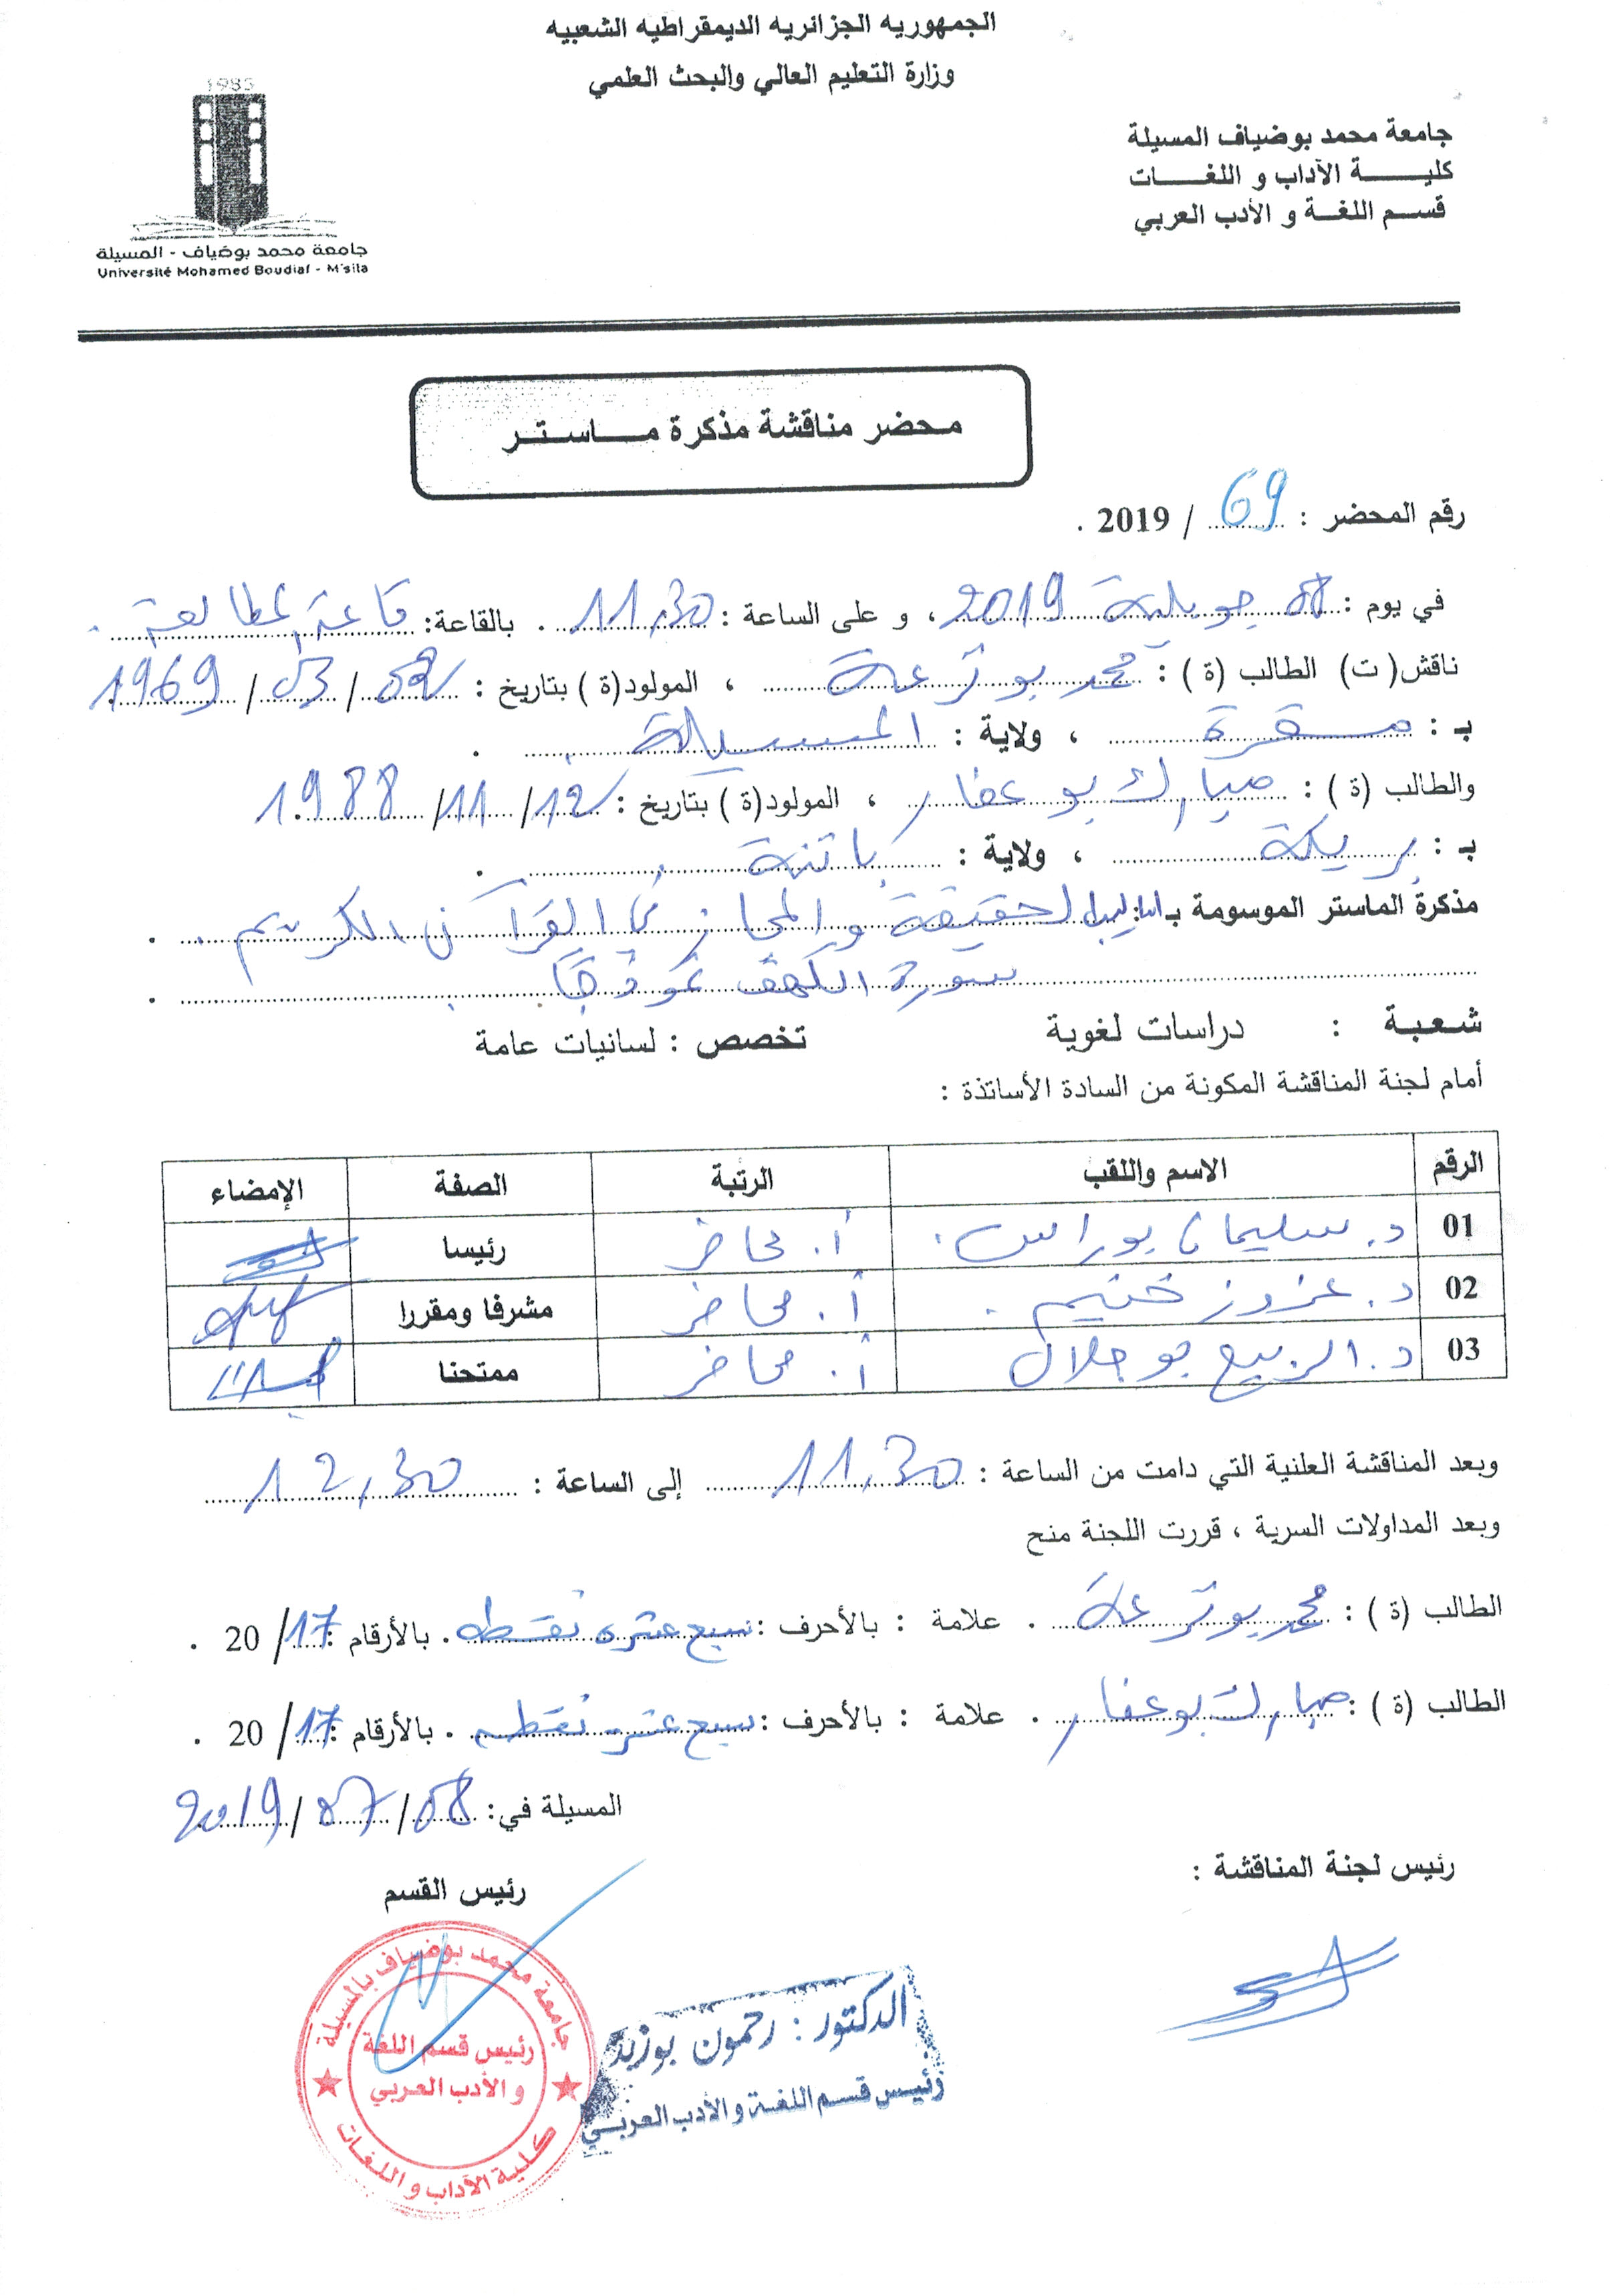 الجمهورية الجزائرية الديمقراطية الشعبية
وزارة التعليم العالي والبحث العلمي
جامعة محمد بوضياف المسيلة
كليـــــــة الآداب و اللغـــــات
قســم اللغــة و الأدب العربي
1985
جامعة محمد بوضياف - المسيلة
Université Mohamed Boudiaf - M'sila
محضر مناقشة مذكرة مـــــاســتــر
رقم المحضر : 69 / 2019 .
في يوم : 08 جويلية 2019 ، و على الساعة : 11,30 . بالقاعة: قاعة المطالعة .
ناقش( ت) الطالب (ة ) : محمد بوترعة ، المولود(ة ) بتاريخ : / 03 / 1969
بـ : مقرة ، ولاية : المسيلة .
والطالب (ة ) : مبارك بوعفار ، المولود(ة ) بتاريخ : 12 / 11 / 1988
بـ : بريكة ، ولاية : باتنة .
مذكرة الماستر الموسومة بـ الحقيقة والمجاز في القرآن الكريم .
سورة الكهف نموذجا .
شعبة : دراسات لغوية تخصص : لسانيات عامة
أمام لجنة المناقشة المكونة من السادة الأساتذة :
الرقم الاسم واللقب الرتبة الصفة الإمضاء
01 د. سليمان بوراس . أ. محاضر رئيسا
02 د. عزوز ختيم . أ. محاضر مشرفا ومقررا
03 د. الربيع بوجلال أ. محاضر ممتحنا
وبعد المناقشة العلنية التي دامت من الساعة : 11,30 إلى الساعة : 12,30
وبعد المداولات السرية ، قررت اللجنة منح
الطالب (ة ) : محمد بوترعة . علامة : بالأحرف : سبع عشرة نقطة . بالأرقام : 17 / 20 .
الطالب (ة ) : مبارك بوعفار . علامة : بالأحرف : سبع عشرة نقطة . بالأرقام : 17 / 20 .
المسيلة في: 08 / 07 / 2019
رئيس لجنة المناقشة :
رئيس القسم
جامعة محمد بوضياف بالمسيلة
رئيس قسم اللغة
و الأدب العربي
كلية الآداب و اللغات
الدكتور : رحمون بوزيد
رئيس قسم اللغة و الأدب العربي